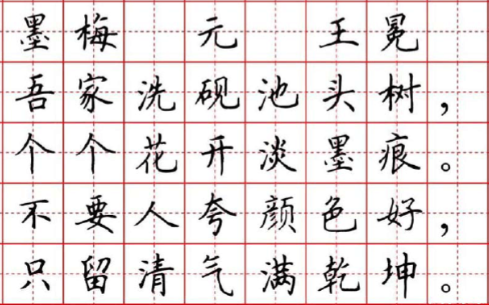 墨梅 元 王冕
吾家洗砚池头树，
个个花开淡墨痕。
不要人夸颜色好，
只留清气满乾坤。